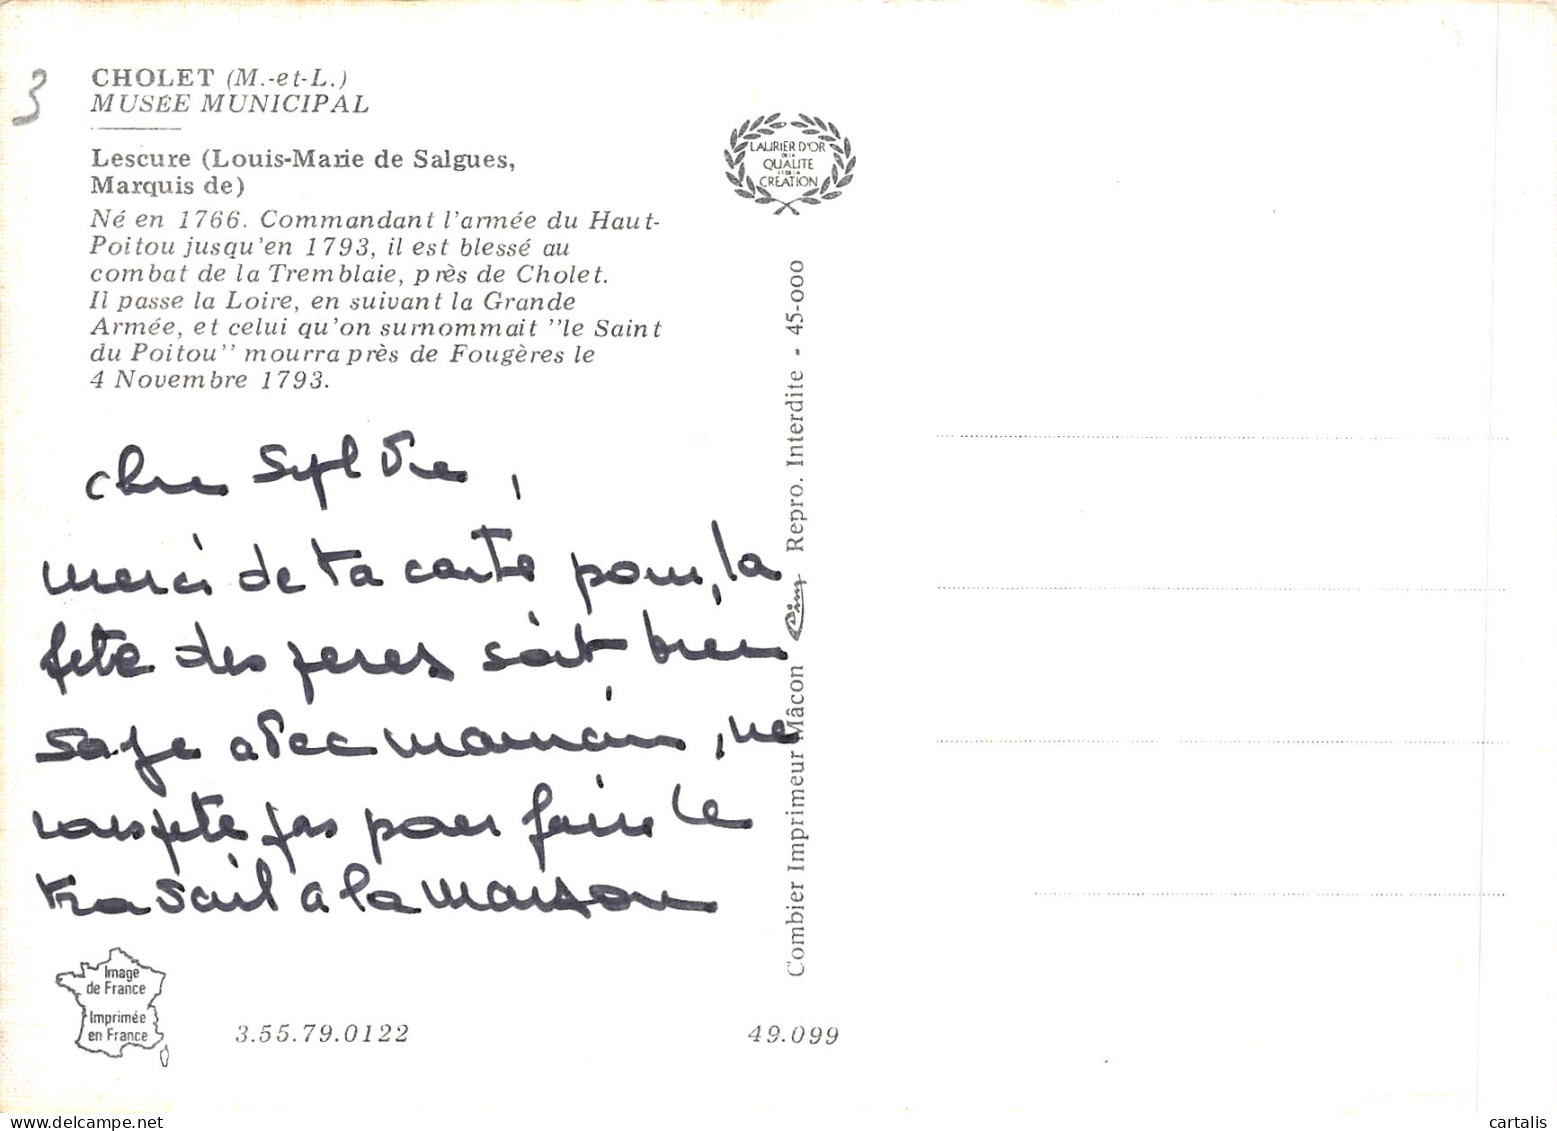 3
CHOLET (M.-et-L.)
MUSÉE MUNICIPAL
Lescure (Louis-Marie de Salgues,
Marquis de)
Né en 1766. Commandant l'armée du Haut-
Poitou jusqu'en 1793, il est blessé au
combat de la Tremblaie, près de Cholet.
Il passe la Loire, en suivant la Grande
Armée, et celui qu'on surnommait "le Saint
du Poitou" mourra près de Fougères le
4 Novembre 1793.
LAURIER D'OR
DE LA
QUALITE
ET DE LA
CREATION
Combier Imprimeur Mâcon Cim Repro. Interdite - 45-000
Sylvie,
merci de ta carte pour la
fete des peres soit bien
sage avec maman, ne
rouspete pas pour faire le
travail a la maison
Image
de France
Imprimée
en France
3.55.79.0122
49.099
cartalis